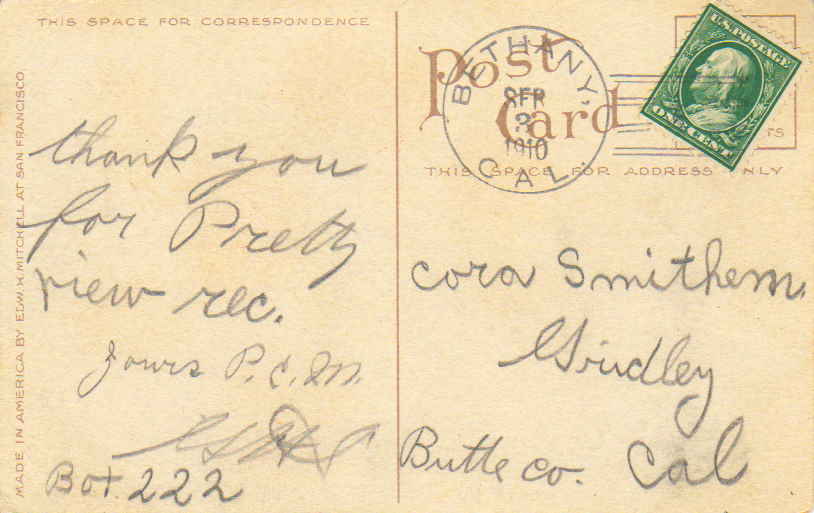 THIS SPACE FOR CORRESPONDENCE
MADE IN AMERICA BY EDW. H. MITCHELL AT SAN FRANCISCO
thank you
for Pretty
view rec.
Yours P. C. M.
Box 222
Post Card
BETHANY,
SEP
3
1910
CAL.
U.S. POSTAGE
ONE CENT
THIS SPACE FOR ADDRESS ONLY
Cora Smithem.
Gridley
Butte co. Cal